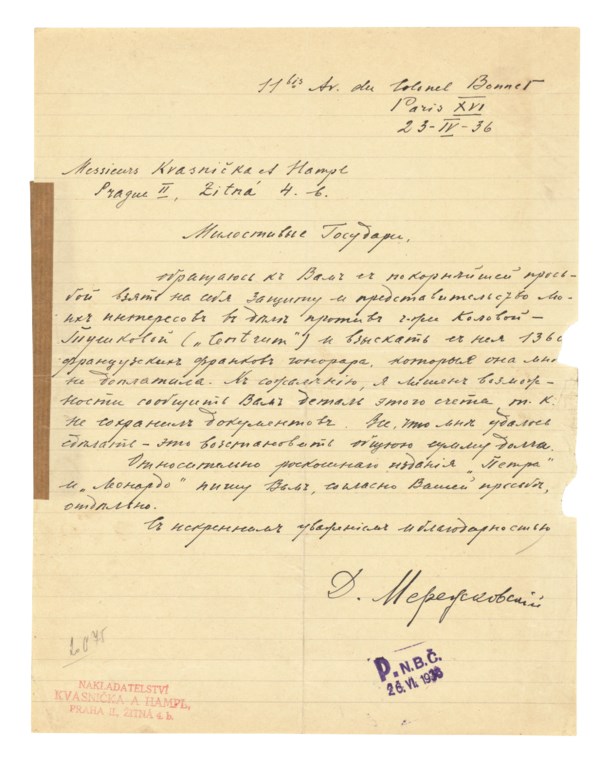 11 bis Av. du Colonel Bonnet
Paris XVI
23-IV-36
Messieurs Kvasnička et Hampl
Prague II, Žitná 4. b.
Милостивые Государи,
обращаюсь къ Вамъ съ покорнѣйшей прось-
бой взять на себя защиту и представительство мо-
ихъ интересовъ въ дѣлѣ противъ г-жи Коловой-
(„Centrum“) и взыскать съ нея 1360
французскихъ франковъ гонорара, которые она мнѣ
не доплатила. Къ сожалѣнію, я лишенъ возмож-
ности сообщить Вамъ детали этого счета, т. к.
не сохранилъ документовъ. Все, что мнѣ удалось
сдѣлать – это возстановить общую сумму долга.
Относительно роскошнаго изданія „Петра“
и „Леонардо“ пишу Вамъ, согласно Вашей просьбѣ,
отдѣльно.
Съ искреннимъ уваженіемъ и благодарностью
Д. Мережковскій
P. N.B.Č.
26. VI. 1936
NAKLADATELSTVÍ
KVASNIČKA A HAMPL,
PRAHA II, ŽITNÁ 4. b.